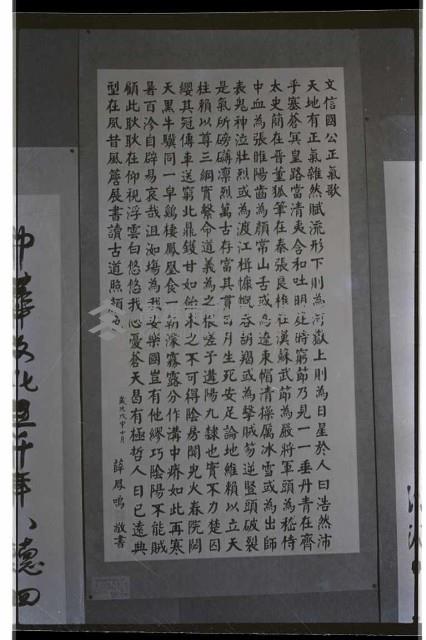 文信國公正氣歌
天地有正氣雜然賦流形下則為河嶽上則為日星於人曰浩然沛
乎塞蒼冥皇路當清夷含和吐明庭時窮節乃見一一垂丹青在齊
太史簡在晉董狐筆在秦張良椎在漢蘇武節為嚴將軍頭為嵇侍
中血為張睢陽齒為顏常山舌或為遼東帽清操厲冰雪或為出師
表鬼神泣壯烈或為渡江楫慷慨吞胡羯或為擊賊笏逆豎頭破裂
是氣所磅礴凜烈萬古存當其貫日月生死安足論地維賴以立天
柱賴以尊三綱實繫命道義為之根嗟予遘陽九隸也實不力楚囚
纓其冠傳車送窮北鼎鑊甘如飴求之不可得陰房闃鬼火春院閟
天黑牛驥同一皁雞棲鳳凰食一朝濛霧露分作溝中瘠如此再寒
暑百沴自辟易哀哉沮洳場為我安樂國豈有他繆巧陰陽不能賊
顧此耿耿在仰視浮雲白悠悠我心憂蒼天曷有極哲人日已遠典
型在夙昔風簷展書讀古道照顏色
歲次戊申十月
薛鳳鳴 敬書
中華文化五千年、德四